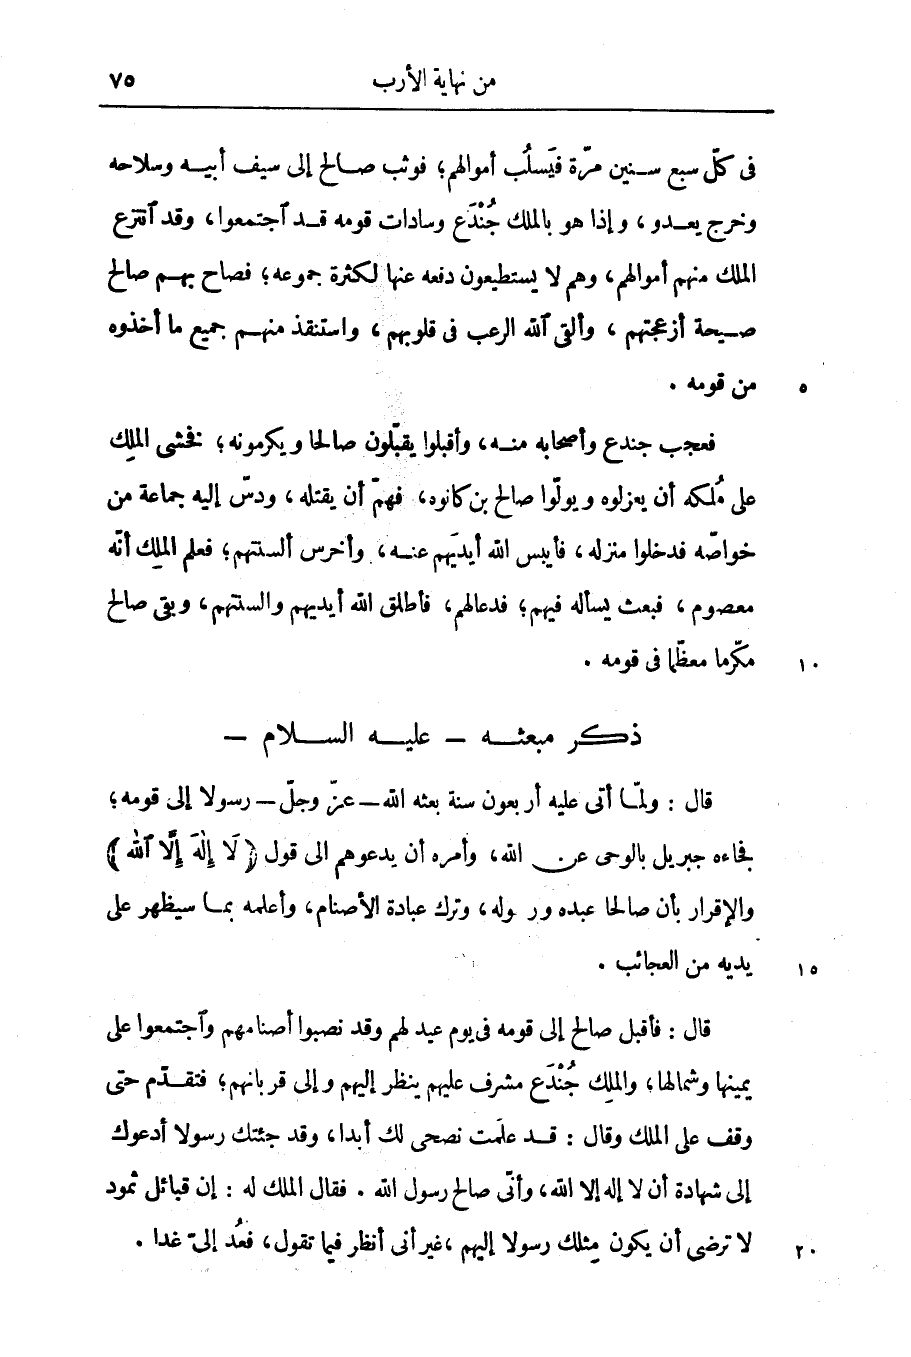 من نهاية الأرب ٧٥
فى كلّ سبع سنين مرّة فيَسلُب أموالهم؛ فوثب صالح إلى سيف أبيه وسلاحه
وخرج يعدو، وإذا هو بالملك جُنْدَع وسادات قومه قد آجتمعوا، وقد آنتزع
الملك منهم أموالهم، وهم لا يستطيعون دفعه عنها لكثرة جموعه؛ فصاح بهم صالح
صيحة أزعجتهم، وألقى آلله الرعب فى قلوبهم، واستنقذ منهم جميع ما أخذوه
من قومه. ٥
فعجب جندع وأصحابه منه، وأقبلوا يقبّلون صالحا ويكرمونه؛ فخشى الملِك
على مُلكه أن يعزلوه ويولّوا صالح بن كانوه، فهمّ أن يقتله، ودسّ إليه جماعة من
خواصّه فدخلوا منزله، فأيبس الله أيديَهم عنه، وأخرس ألسنتهم؛ فعلم الملِك أنّه
معصوم، فبعث يسأله فيهم؛ فدعا لهم، فأطلق الله أيديهم والسنتهم، وبقى صالح
مكرّما معظّما فى قومه. ١٠
ذكر مبعثه – عليه السلام –
قال: ولمّا أتى عليه أربعون سنة بعثه الله – عزّ وجلّ – رسولا إلى قومه؛
فجاءه جبريل بالوحى عن الله، وأمره أن يدعوهم الى قول ﴿لَا إِلٰهَ إِلَّا آللهُ﴾
والإقرار بأن صالحا عبده ورسوله، وترك عبادة الأصنام، وأعلمه بما سيظهر على
يديه من العجائب. ١٥
قال: فأقبل صالح إلى قومه فى يوم عيد لهم وقد نصبوا أصنامهم وآجتمعوا على
يمينها وشمالها، والملِك جُنْدَع مشرف عليهم ينظر إليهم وإلى قربانهم؛ فتقدّم حتى
وقف على الملك وقال: قد علمَت نصحى لك أبدا، وقد جئتك رسولا أدعوك
إلى شهادة أن لا إله إلا الله، وأنّى صالح رسول الله. فقال الملك له: إن قبائل ثمود
لا ترضى أن يكون مِثلك رسولا إليهم، غير أنى أنظر فيما تقول، فعُد إلىّ غدا. ٢٠